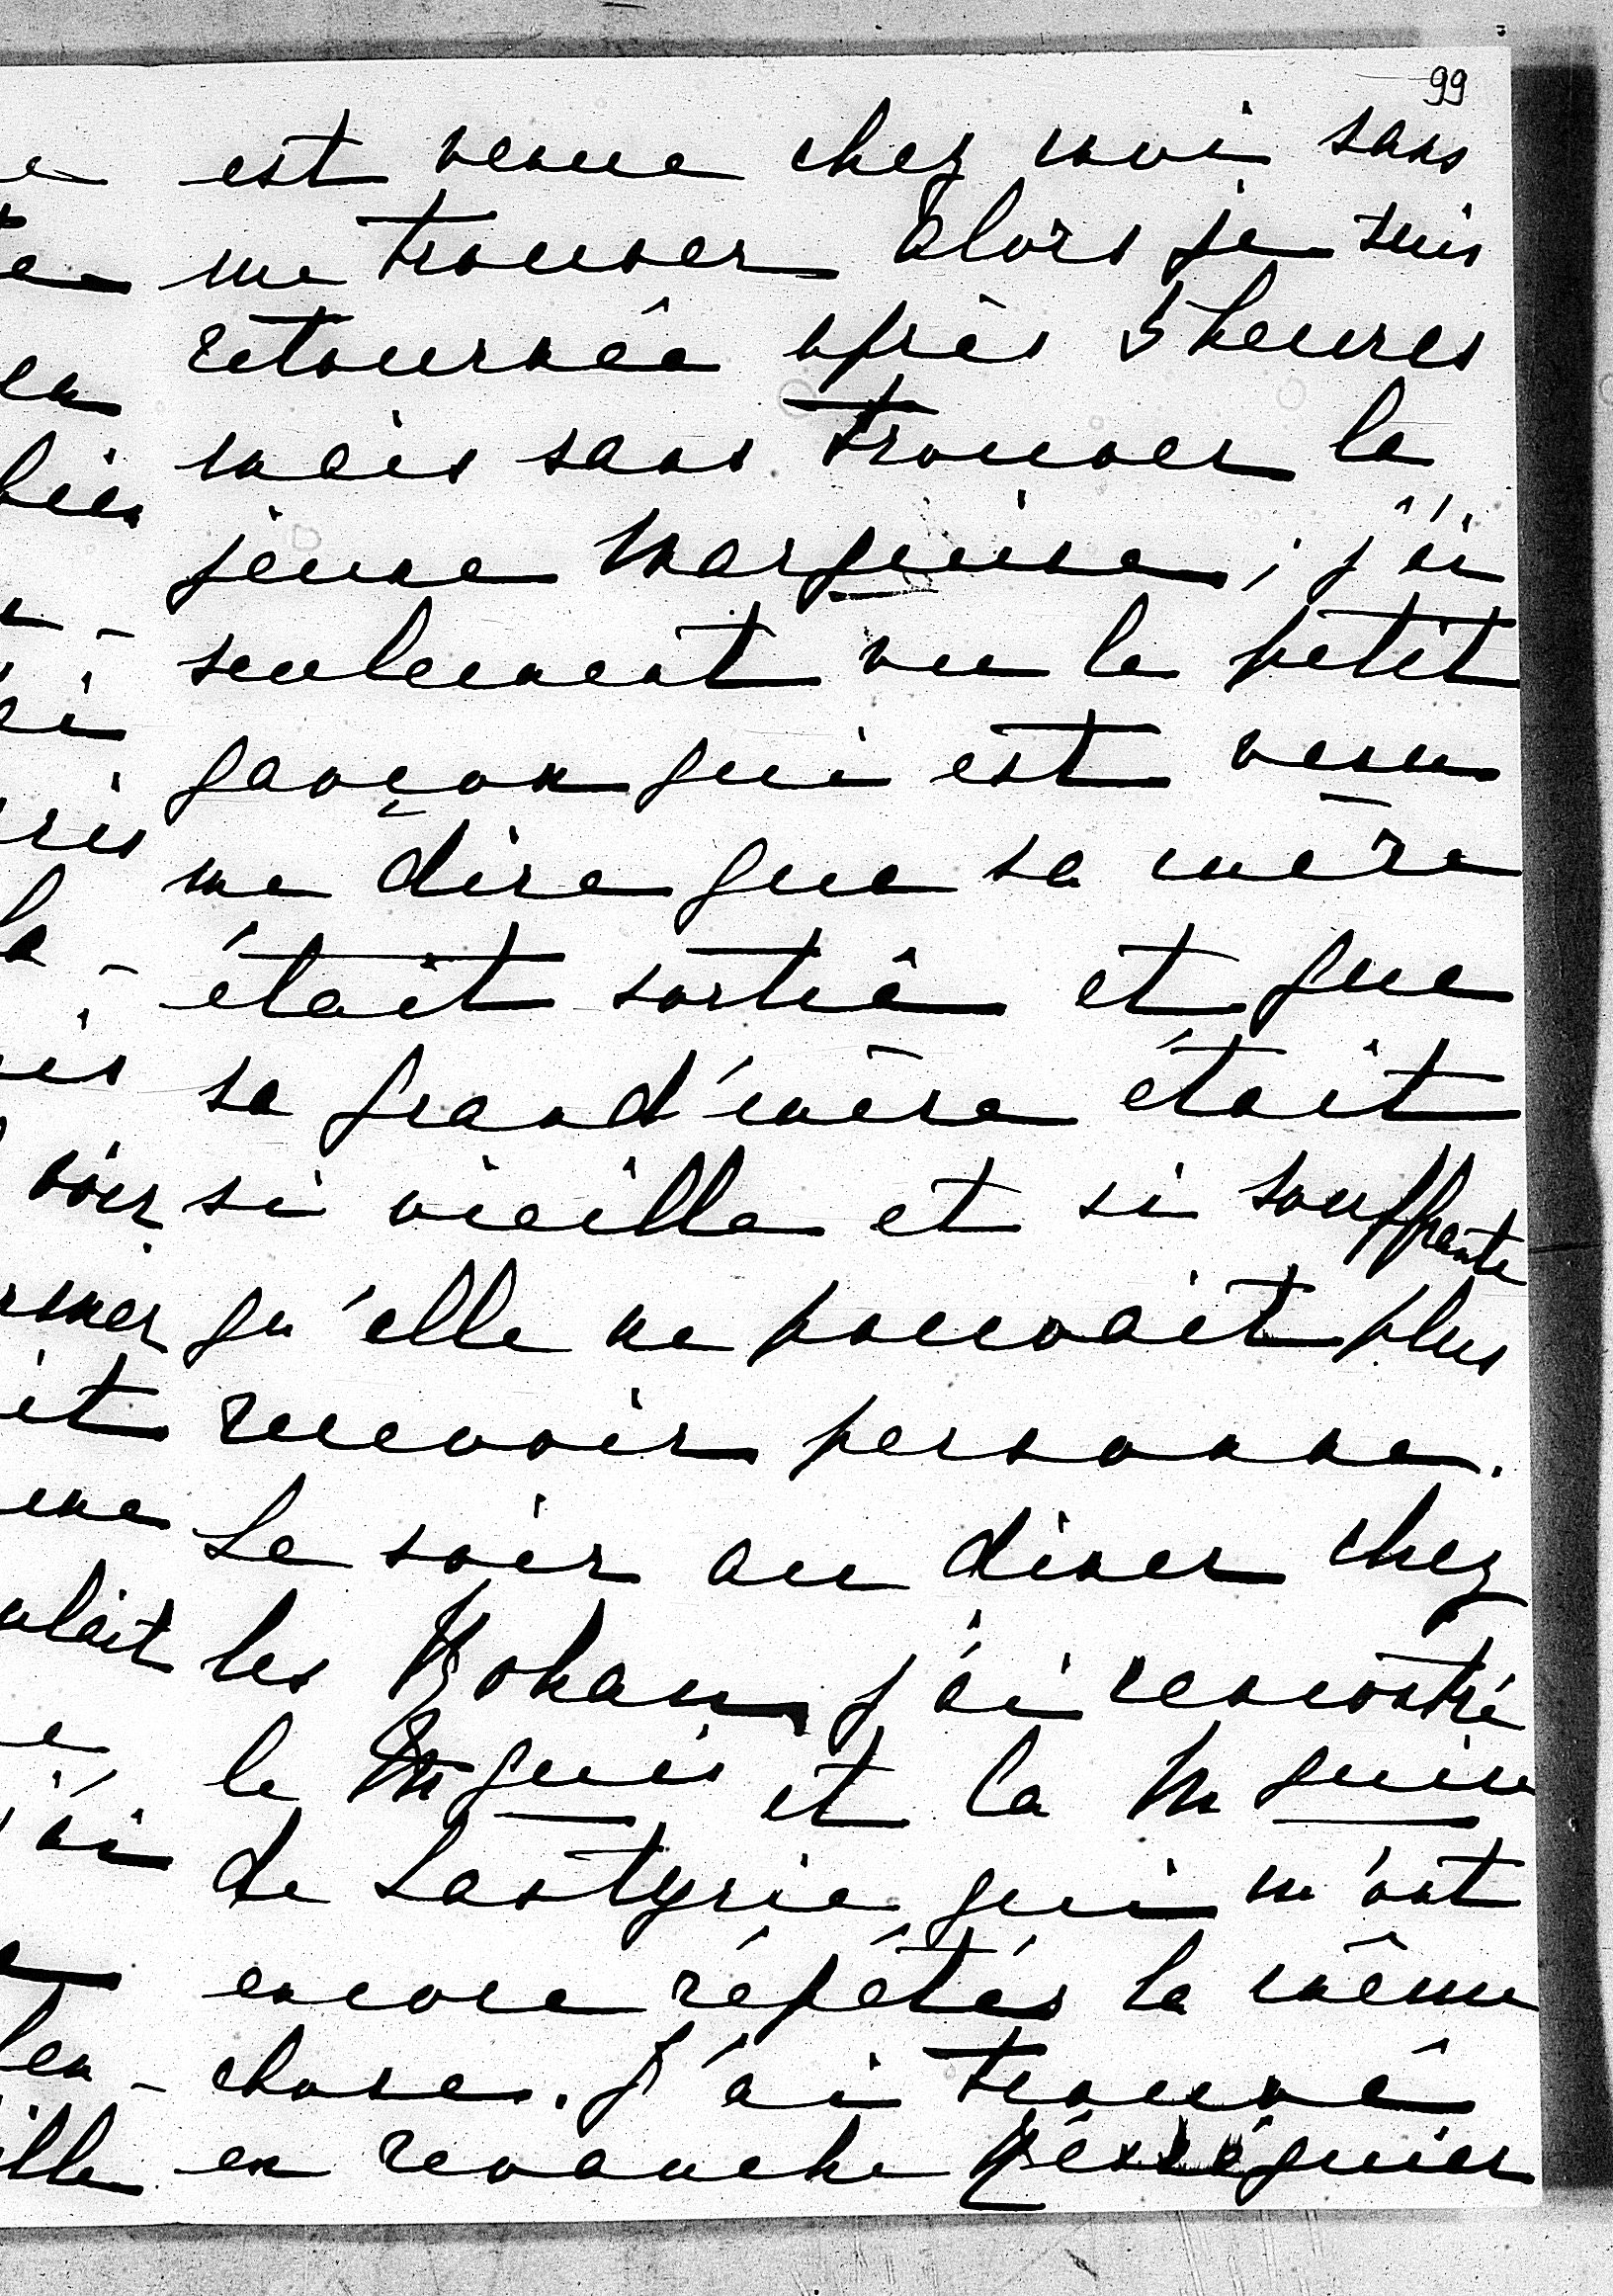 99
est venue chez moi sans
me trouver Alors je suis
retournée après 5 heures
mais sans trouver la
jeune Marquise, j'ai
seulement vu le petit
garçon qui est venu
me dire que sa mère
était sortie et que
sa grand'mère était
si vieille et si souffrante
qu'elle ne pouvait plus
recevoir personne.
Le soir au diner chez
les Rohan j'ai rencontré
le Mquis et la Mquise
de Lastyrie qui m'ont
encore répétés la même
chose. J'ai trouvé
en revanche